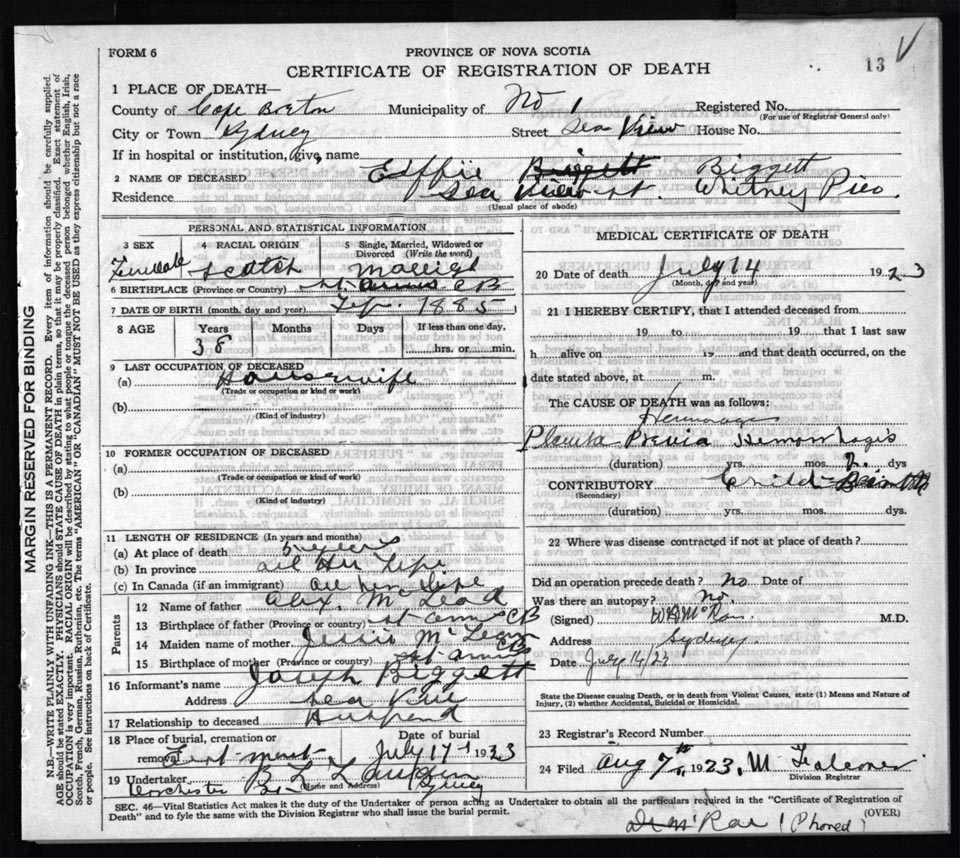 FORM 6
PROVINCE OF NOVA SCOTIA
CERTIFICATE OF REGISTRATION OF DEATH
13
1 PLACE OF DEATH—
County of Cape Breton Municipality of No 1 Registered No.
(For use of Registrar General only)
City or Town Sydney Street Sea View House No.
If in hospital or institution, give name
2 NAME OF DECEASED Effie Biggett Biggett
Residence Sea View st. Whitney Pier
(Usual place of abode)
PERSONAL AND STATISTICAL INFORMATION
3 SEX 4 RACIAL ORIGIN 5 Single, Married, Widowed or Divorced (Write the word)
Female Scotch Married
6 BIRTHPLACE (Province or Country) St Anns CB
7 DATE OF BIRTH (month, day and year) 1885
8 AGE Years Months Days If less than one day,
38 hrs. or min.
9 LAST OCCUPATION OF DECEASED
(a) Housewife
(Trade or occupation or kind of work)
(b)
(Kind of industry)
10 FORMER OCCUPATION OF DECEASED
(a)
(Trade or occupation or kind of work)
(b)
(Kind of industry)
11 LENGTH OF RESIDENCE (In years and months)
(a) At place of death
(b) In province all Her Life
(c) In Canada (if an immigrant) all her Life
Parents
12 Name of father Alex. McLeod
13 Birthplace of father (Province or country) St Anns CB
14 Maiden name of mother Jessie McLean
15 Birthplace of mother (Province or country) St Anns CB
16 Informant's name Joseph Biggett
Address Sea View
17 Relationship to deceased Husband
18 Place of burial, cremation or removal Date of burial
July 17 1923
19 Undertaker
(Name and Address)
Dorchester St Sydney
MEDICAL CERTIFICATE OF DEATH
20 Date of death July 14 1923
(Month, day and year)
21 I HEREBY CERTIFY, that I attended deceased from
19 to 19 that I last saw
h alive on 19 and that death occurred, on the
date stated above, at m.
The CAUSE OF DEATH was as follows:
Placenta Previa Hemorrhages
(duration) yrs. mos. 2 dys
CONTRIBUTORY Child Birth
(Secondary)
(duration) yrs. mos. dys.
22 Where was disease contracted if not at place of death?
Did an operation precede death? No. Date of
Was there an autopsy? No.
(Signed) M.D.
Address Sydney
Date July 14/23
State the Disease causing Death, or in death from Violent Causes, state (1) Means and Nature of Injury, (2) whether Accidental, Suicidal or Homicidal.
23 Registrar's Record Number
24 Filed Aug 7th, 1923, M Falconer
Division Registrar
SEC. 46—Vital Statistics Act makes it the duty of the Undertaker of person acting as Undertaker to obtain all the particulars required in the "Certificate of Registration of
Death" and to fyle the same with the Division Registrar who shall issue the burial permit.
(OVER)
(Phoned)
MARGIN RESERVED FOR BINDING
N.B.—WRITE PLAINLY WITH UNFADING INK—THIS IS A PERMANENT RECORD. Every item of information should be carefully supplied.
AGE should be stated EXACTLY. PHYSICIANS should STATE CAUSE OF DEATH in plain terms, so that it may be properly classified. Exact statement of
OCCUPATION is very important. RACIAL ORIGIN will be described by stating to what people or tongue the deceased person belonged whether English, Irish,
Scotch, French, German, Russian, Ruthenian, etc. The terms "AMERICAN" OR "CANADIAN" MUST NOT BE USED as they express citizenship but not a race
or people. See instructions on back of Certificate.